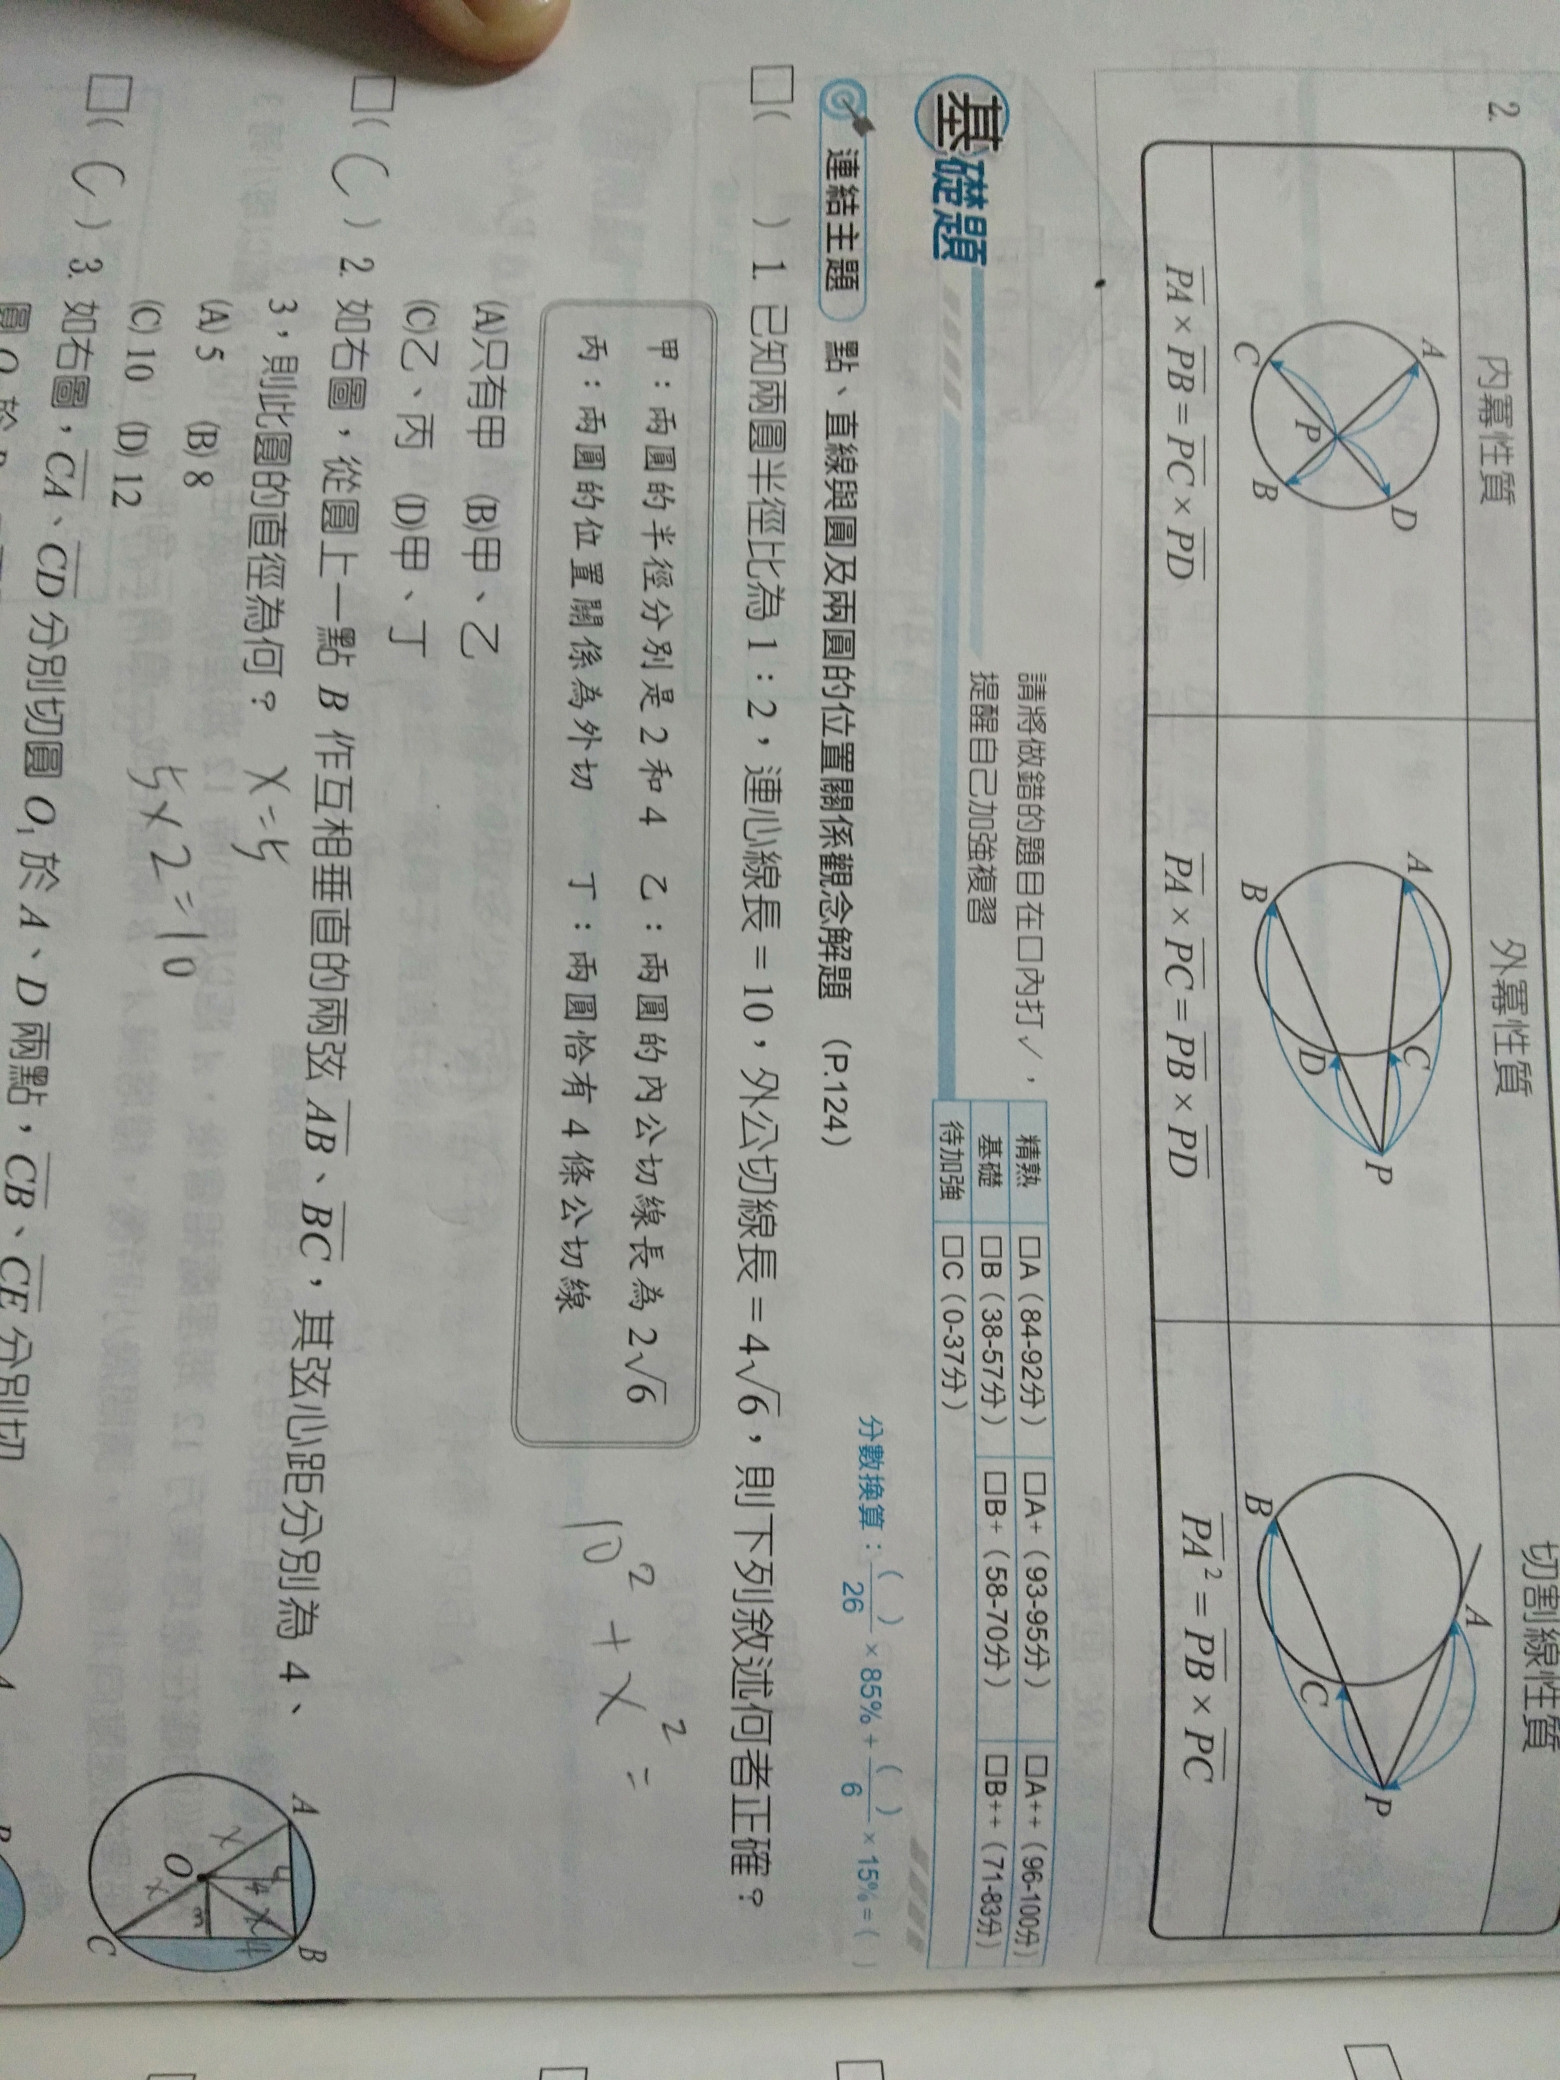 2.
內冪性質 外冪性質 切割線性質
A D P C B
A C P D B
A P C B
PA × PB = PC × PD
PA × PC = PB × PD
PA² = PB × PC
基礎題
請將做錯的題目在□內打✓，
提醒自己加強複習
精熟 □A（84-92分） □A+（93-95分） □A++（96-100分）
基礎 □B（38-57分） □B+（58-70分） □B++（71-83分）
待加強 □C（0-37分）
分數換算：( )/26 × 85% + ( )/6 × 15% = ( )
連結主題 點、直線與圓及兩圓的位置關係觀念解題（P.124）
□( ) 1. 已知兩圓半徑比為 1：2，連心線長＝10，外公切線長＝4√6，則下列敘述何者正確？
甲：兩圓的半徑分別是 2 和 4 乙：兩圓的內公切線長為 2√6
丙：兩圓的位置關係為外切 丁：兩圓恰有 4 條公切線
10² + x² =
(A)只有甲 (B)甲、乙
(C)乙、丙 (D)甲、丁
□( C ) 2. 如右圖，從圓上一點 B 作互相垂直的兩弦 AB、BC，其弦心距分別為 4、
3，則此圓的直徑為何？ x=5
(A) 5 (B) 8
5×2=10
(C) 10 (D) 12
A B O C x 4 x 3 4 x
□( C ) 3. 如右圖，CA、CD 分別切圓 O₁ 於 A、D 兩點，CB、CE 分別切
圓 O